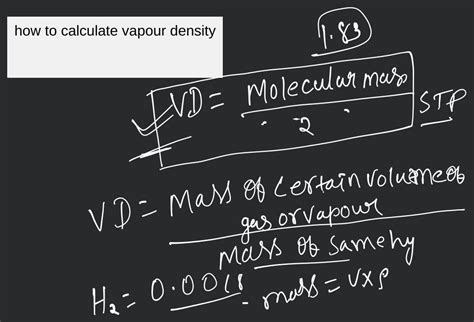 how to calculate vapour density
1.83
VD = Molecular mass / 2 STP
VD = Mass of certain volume of
gas or vapour
mass of same hy
H₂ = 0.0018 mass = V×ρ